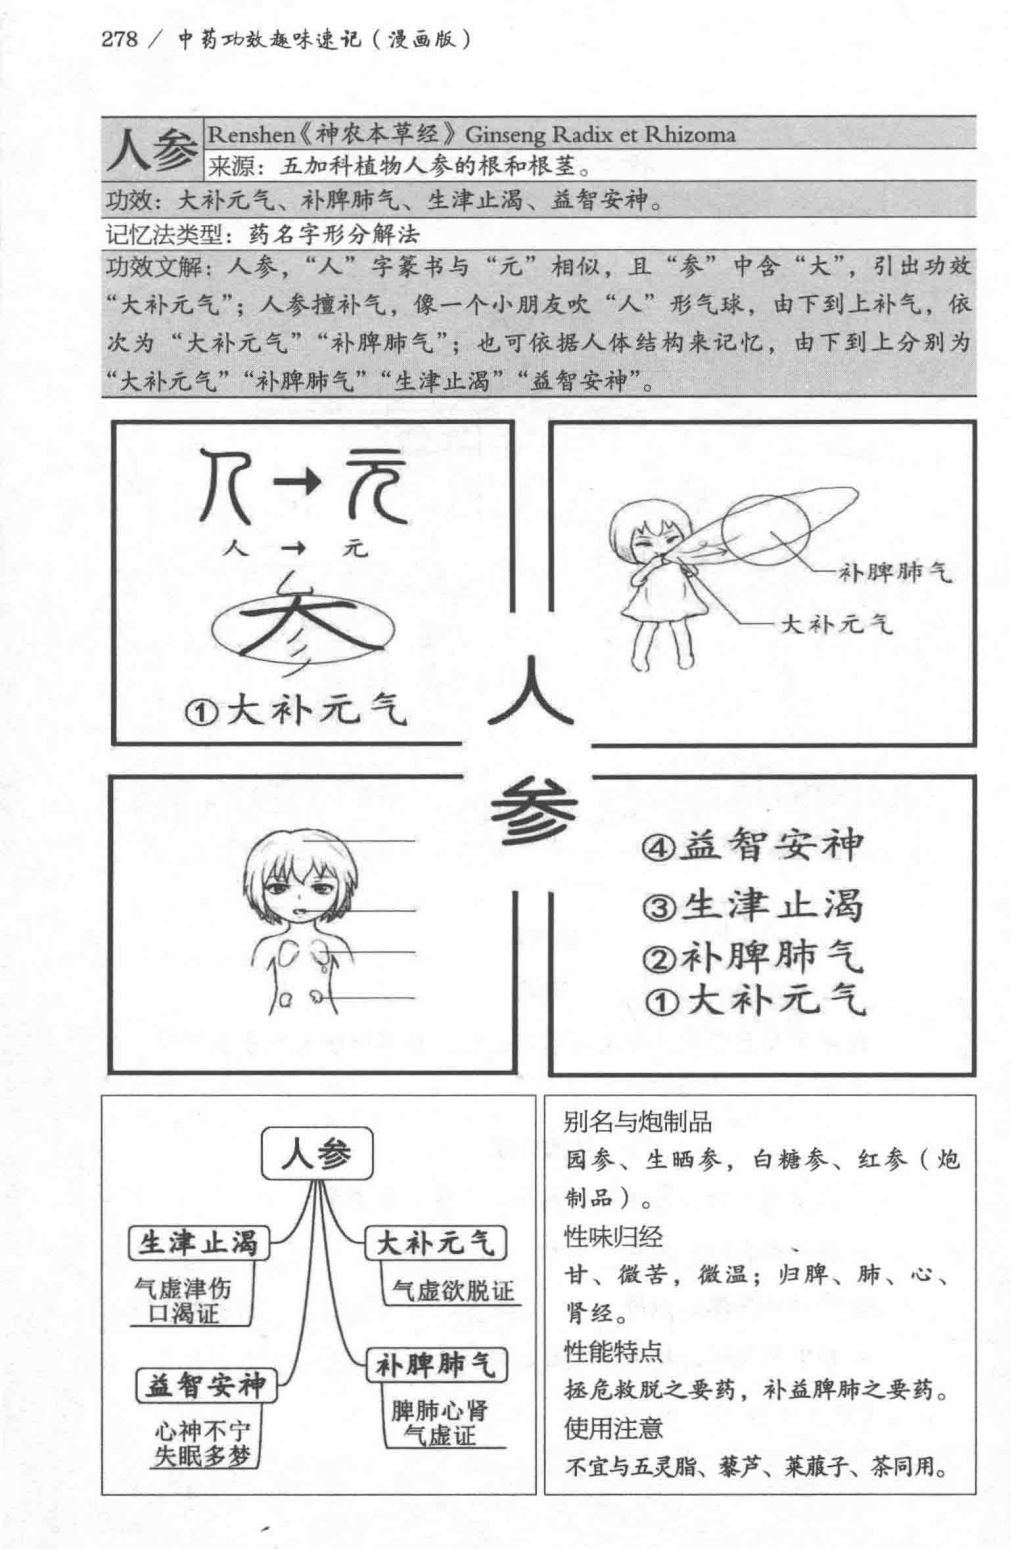 278 / 中药功效趣味速记（漫画版）
人参
Renshen《神农本草经》Ginseng Radix et Rhizoma
来源：五加科植物人参的根和根茎。
功效：大补元气、补脾肺气、生津止渴、益智安神。
记忆法类型：药名字形分解法
功效文解：人参，“人”字篆书与“元”相似，且“参”中含“大”，引出功效
“大补元气”；人参擅补气，像一个小朋友吹“人”形气球，由下到上补气，依
次为“大补元气”“补脾肺气”；也可依据人体结构来记忆，由下到上分别为
“大补元气”“补脾肺气”“生津止渴”“益智安神”。
人→元
人 → 元
参
①大补元气
补脾肺气
大补元气
人
参
④益智安神
③生津止渴
②补脾肺气
①大补元气
人参
生津止渴
气虚津伤
口渴证
大补元气
气虚欲脱证
益智安神
心神不宁
失眠多梦
补脾肺气
脾肺心肾
气虚证
别名与炮制品
园参、生晒参，白糖参、红参（炮
制品）。
性味归经
甘、微苦，微温；归脾、肺、心、
肾经。
性能特点
拯危救脱之要药，补益脾肺之要药。
使用注意
不宜与五灵脂、藜芦、莱菔子、茶同用。